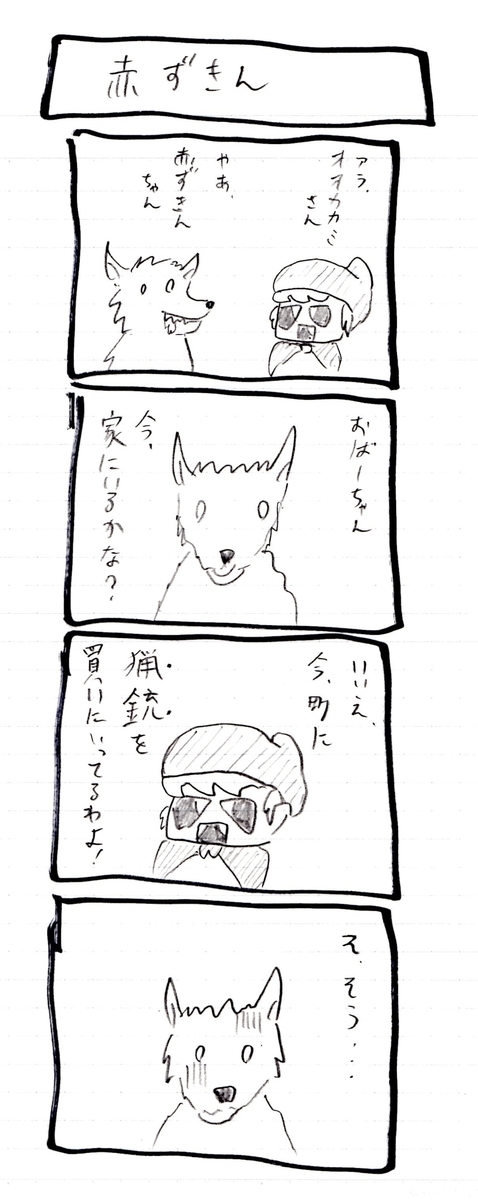 赤ずきん
アラ、
オオカカミ
さん
やあ、
赤ずきん
ちゃん
おばーちゃん
今、
家にいるかな？
いいえ、
今、町に
猟銃を
買いにいってるわよ！
そ、そう・・・